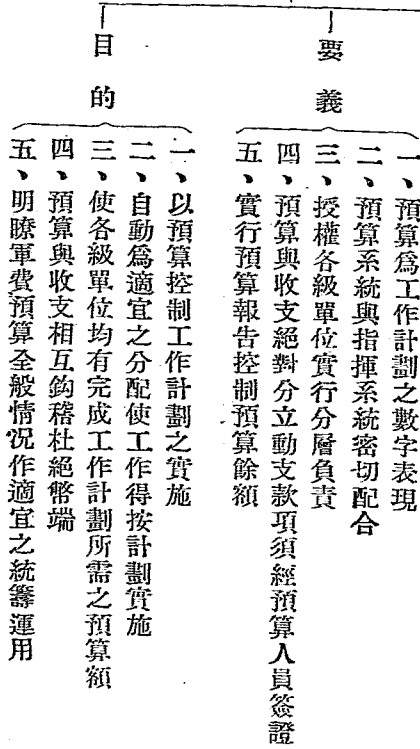 要義
一、預算爲工作計劃之數字表現
二、預算系統與指揮系統密切配合
三、授權各級單位實行分層負責
四、預算與收支絕對分立動支款項須經預算人員簽證
五、實行預算報告控制預算餘額
目的
一、以預算控制工作計劃之實施
二、自動爲適宜之分配使工作得按計劃實施
三、使各級單位均有完成工作計劃所需之預算額
四、預算與收支相互鈎稽杜絕幣端
五、明瞭軍費預算全般情況作適宜之統籌運用